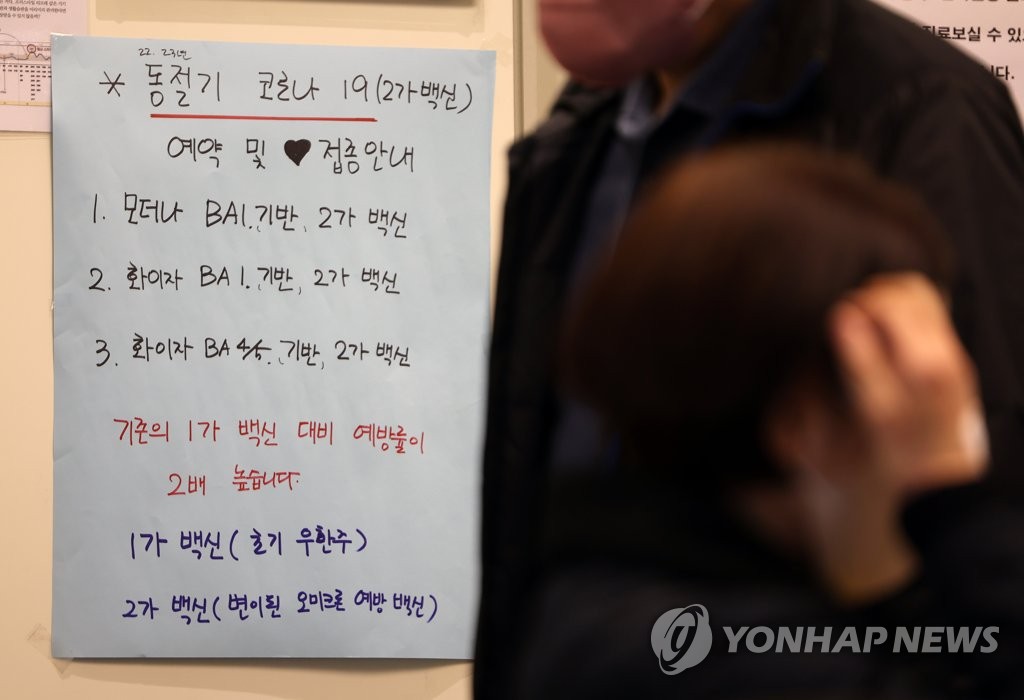 22. 23년
* 동절기 코로나 19 (2가백신)
예약 및 ♥ 접종안내
1. 모더나 BA1. 기반, 2가 백신
2. 화이자 BA1. 기반, 2가 백신
3. 화이자 BA4/5. 기반, 2가 백신
기존의 1가 백신 대비 예방률이
2배 높습니다.
1가 백신 ( 초기 우한주 )
2가 백신 ( 변이된 오미크론 예방 백신 )
진료보실 수 있
니다.
YONHAP NEWS